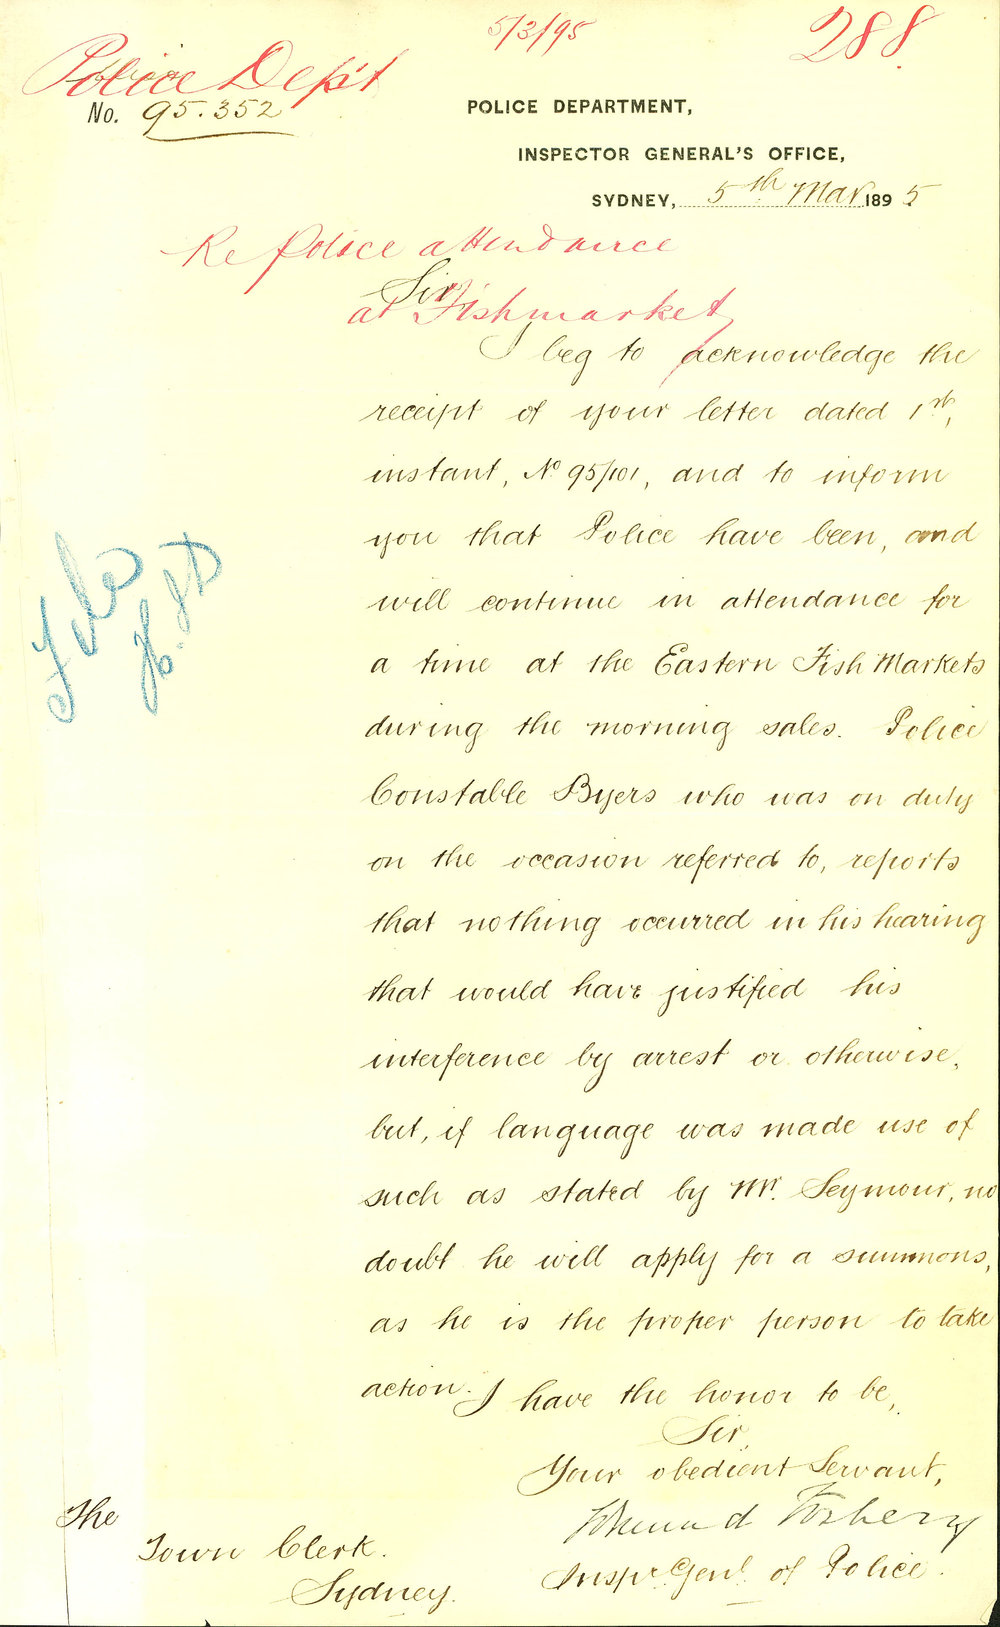 5/3/95
288
Police Dep't
No. 95.352
POLICE DEPARTMENT,
INSPECTOR GENERAL'S OFFICE,
SYDNEY, 5th Mar 1895
Re Police attendance
Sir,
at Fishmarket
I beg to acknowledge the
receipt of your letter dated 1st,
instant, No 95/101, and to inform
you that Police have been, and
will continue in attendance for
a time at the Eastern Fish Markets
during the morning sales. Police
Constable Byers who was on duty
on the occasion referred to, reports
that nothing occurred in his hearing
that would have justified his
interference by arrest or otherwise,
but, if language was made use of
such as stated by Mr. Seymour, no
doubt he will apply for a summons,
as he is the proper person to take
action. I have the honor to be,
Sir,
Your obedient Servant,
Edmund Fosbery
Inspr. Genl. of Police.
The
Town Clerk.
Sydney.
File